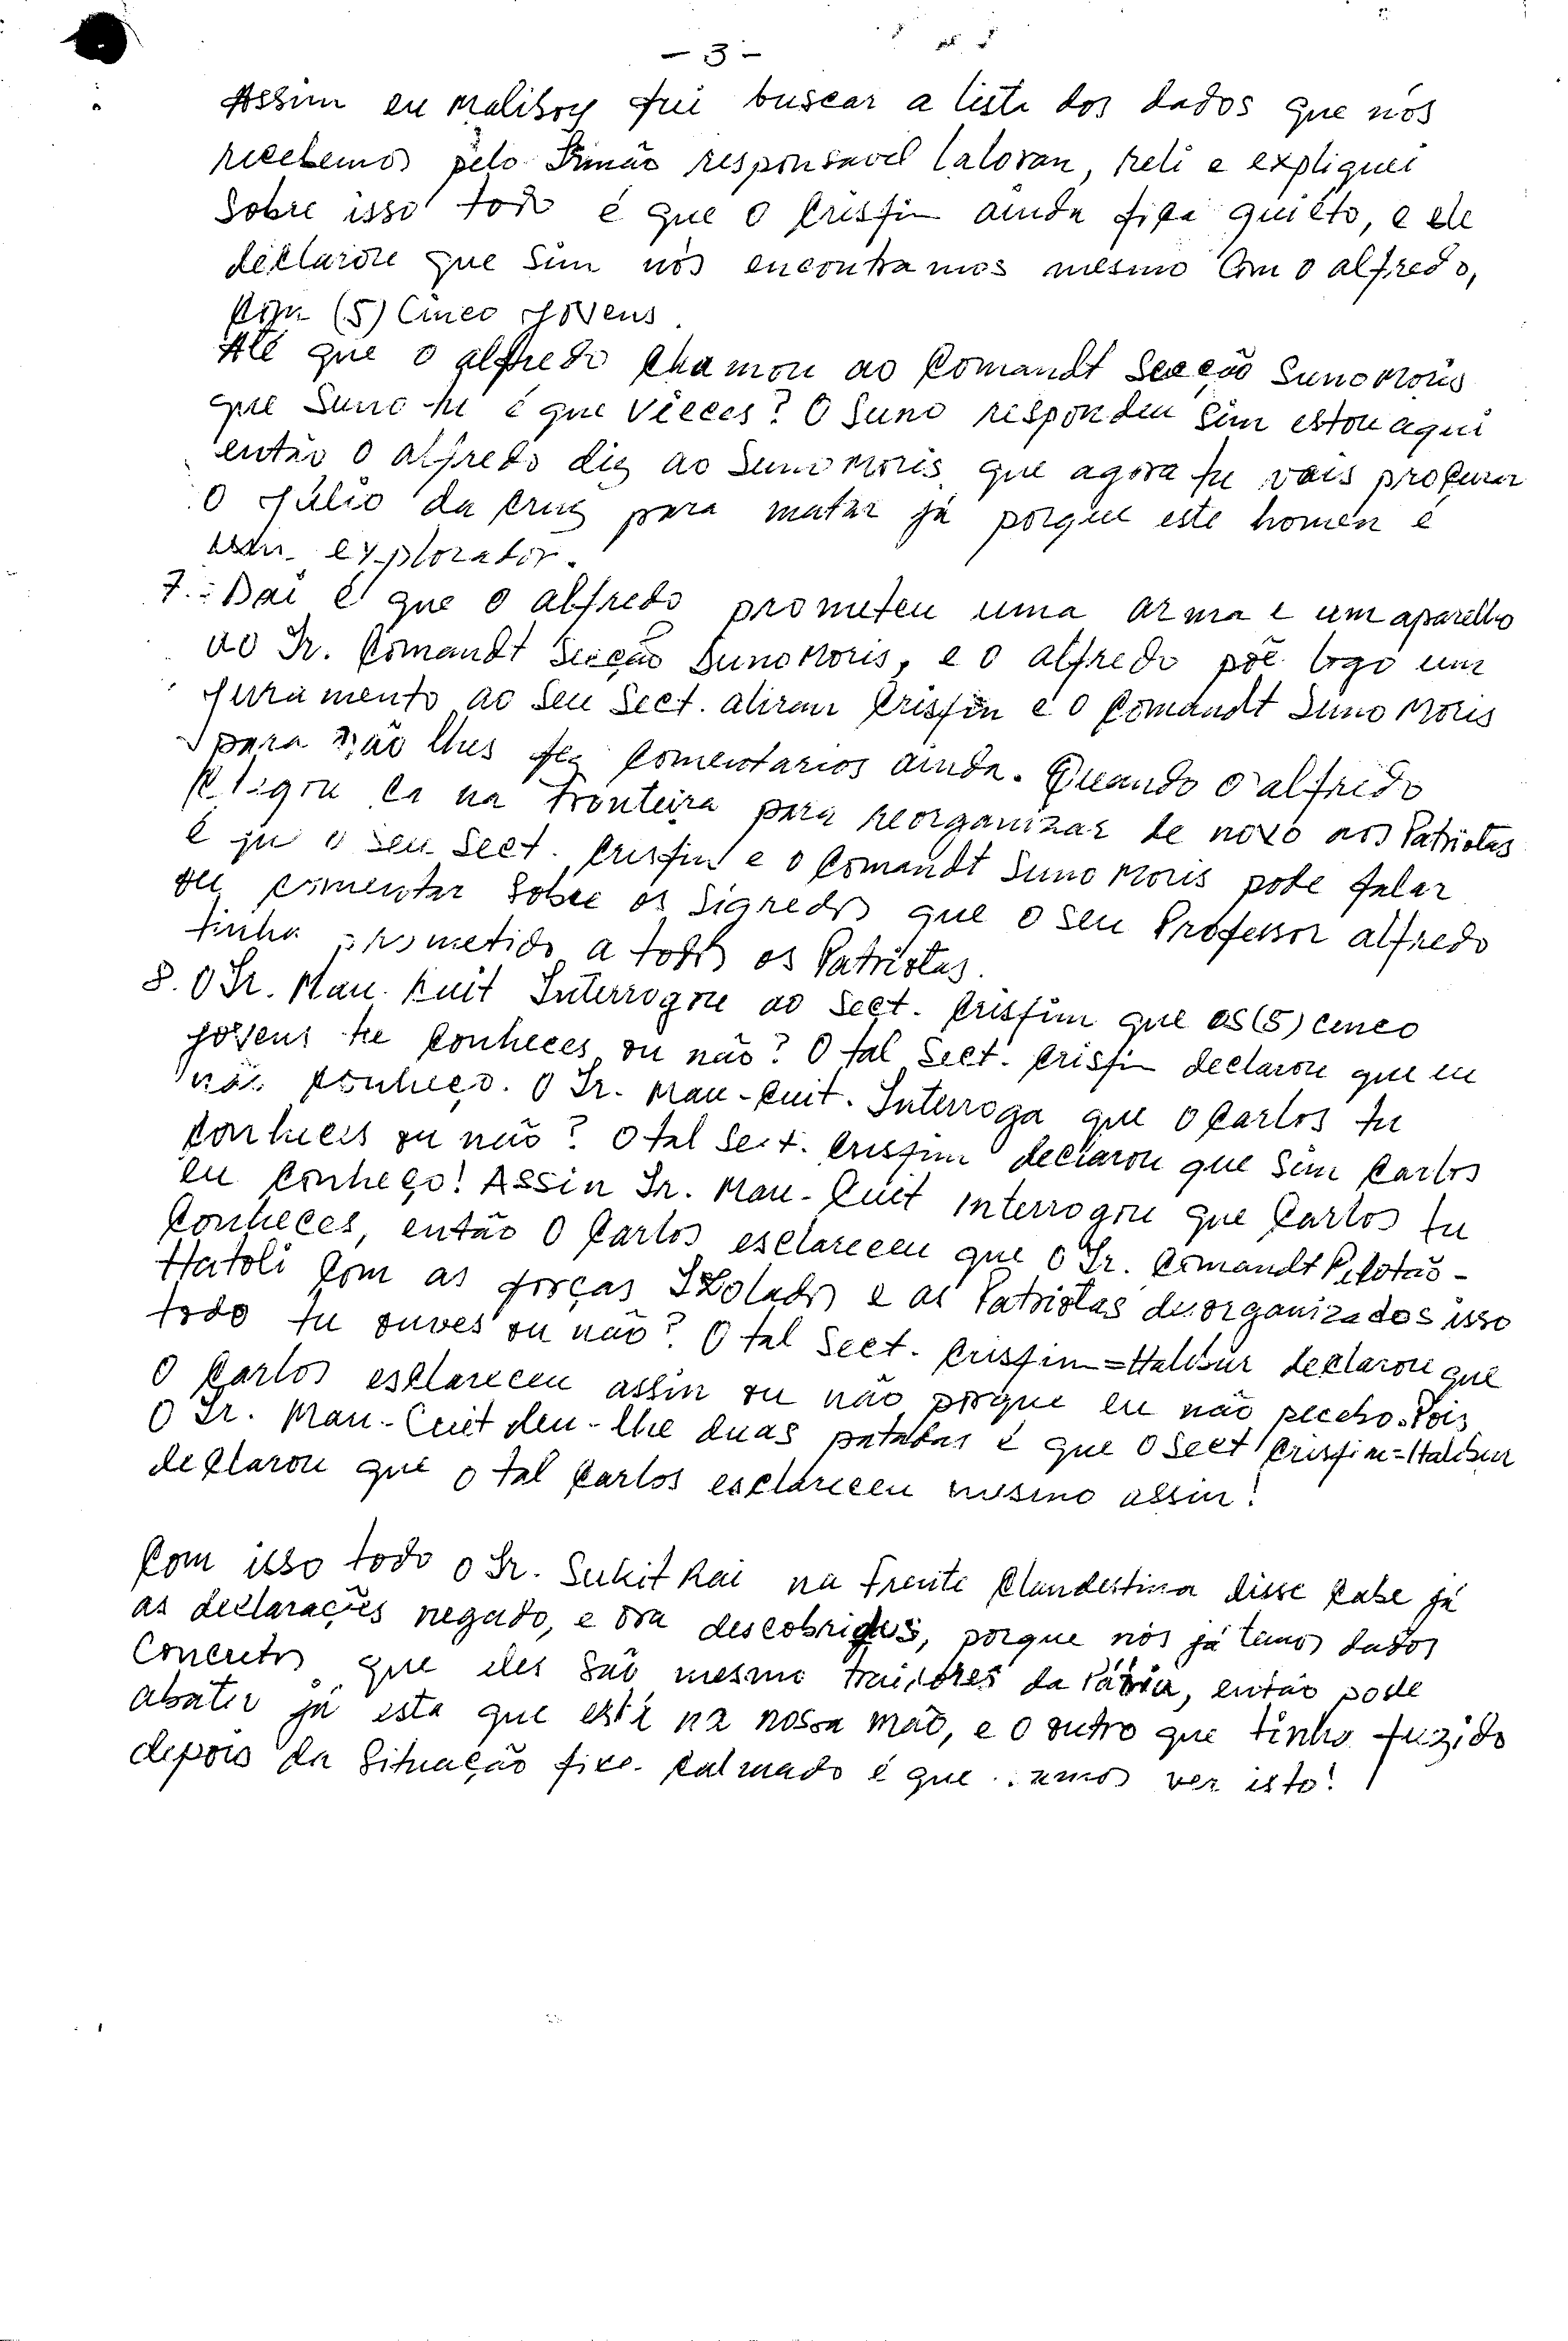 - 3 -
Assim eu Malisoy fui buscar a lista dos dados que nós
recebemos pelo Irmão responsavel Laloran, reli e expliquei
sobre isso todo é que o Crisfin ainda fiça quiéto, e ele
declarou que sim nós encontramos mesmo com o alfredo,
com (5) Cinco Jovens.
Até que o alfredo chamou ao Comandt Secção Suno Moris
que Suno tu é que vieces? O Suno respondeu sim estou aqui
então o alfredo diz ao Suno Moris que agora tu vais procurar
o Júlio da Cruz para matar já porque este homen é
um explorador.
7.- Dai é que o alfredo prometeu uma arma e um aparelho
ao Sr. Comandt Secção Suno Moris, e o alfredo põe logo um
juramento ao seu Sect. aliran Crisfin e o Comandt Suno Moris
para não lhes fez comentarios ainda. Quando o alfredo
chegou ca na Fronteira para reorganizar de novo aos Patriotas
é que o seu Sect. Crisfin e o Comandt Suno Moris pode falar
ou comentar sobre os sigredos que o seu Professor alfredo
tinha prometido a todos os Patriotas.
8. O Sr. Mau-Cuit Interrogou ao Sect. Crisfim que os (5) cinco
jovens tu conheces ou não? O tal Sect. Crisfin declarou que eu
não conheço. O Sr. Mau-Cuit. Interroga que o Carlos tu
conheces ou não? O tal Sect. Crisfim declarou que sim Carlos
eu conheço! Assin Sr. Mau-Cuit interrogou que Carlos tu
conheces, então o Carlos esclareceu que o Sr. Comandt Pelotão-
Hatoli com as forças Izolados e as Patriotas desorganizados isso
todo tu ouves ou não? O tal Sect. Crisfim=Halibur declarou que
o Carlos esclareceu assin ou não porque eu não pecebo. Pois
o Sr. Mau-Cuit deu-lhe duas patadas é que o Sect Crisfim=Halibur
declarou que o tal Carlos esclareceu mesmo assin!
Com isso todo o Sr. Sukit Rai na Frente Clandestina disse cabe já
as declarações negado, e ora descobridos, porque nós já temos dados
concretos que eles são mesmo traidores da Pátria, então pode
abater já esta que está na nossa mão, e o outro que tinha fuzido
depois da situação fice calmado é que vamos ver isto!